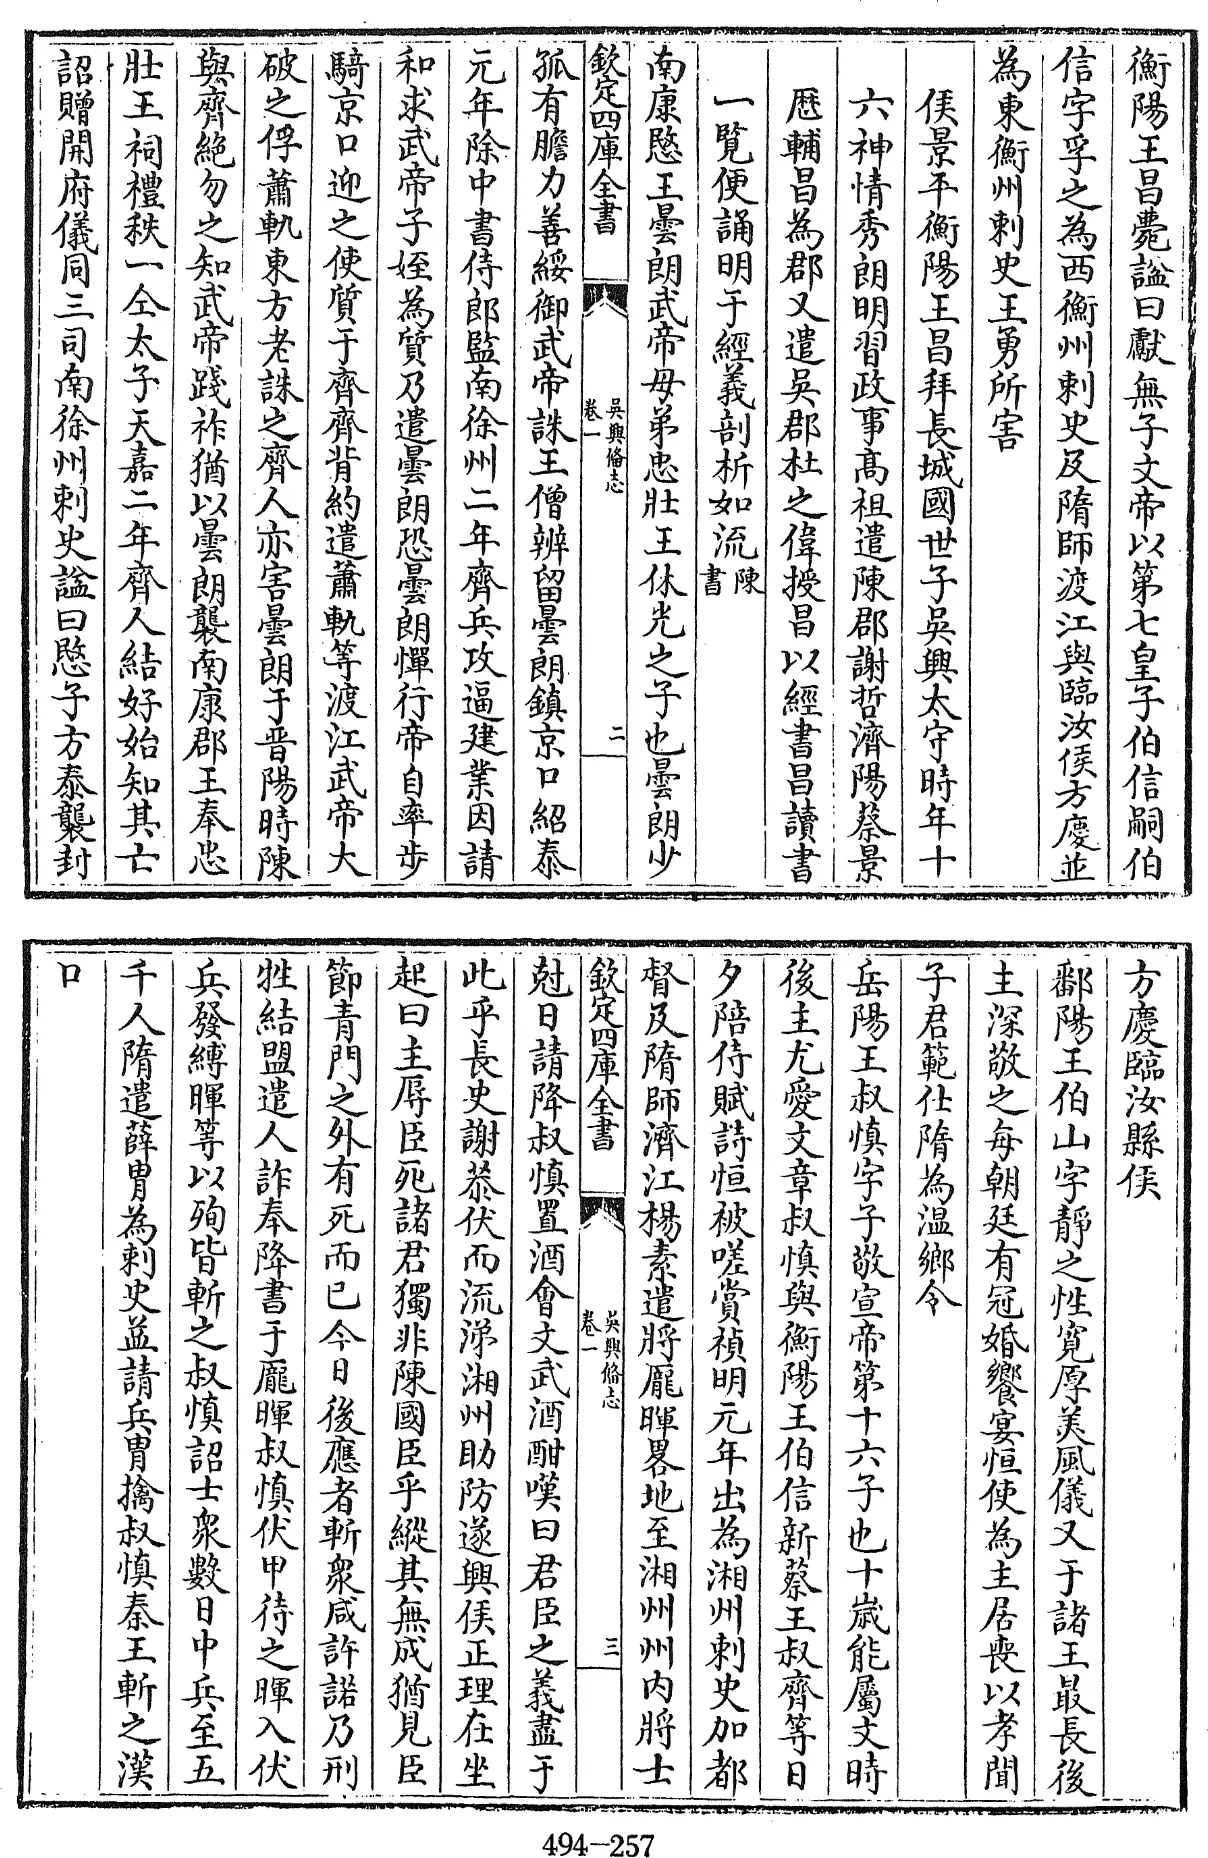 衡陽王昌薨諡曰獻無子文帝以第七皇子伯信嗣伯
信字孚之為西衡州刺史及隋師渡江與臨汝侯方慶並
為東衡州刺史王勇所害
侯景平衡陽王昌拜長城國世子吳興太守時年十
六神情秀朗明習政事高祖遣陳郡謝哲濟陽蔡景
歷輔昌為郡又遣吳郡杜之偉授昌以經書昌讀書
一覽便誦明于經義剖析如流陳
書
南康愍王曇朗武帝母弟忠壯王休光之子也曇朗少
欽定四庫全書
吳興備志
卷一
二
孤有膽力善綏御武帝誅王僧辨留曇朗鎮京口紹泰
元年除中書侍郎監南徐州二年齊兵攻逼建業因請
和求武帝子姪為質乃遣曇朗恐曇朗憚行帝自率步
騎京口迎之使質于齊齊背約遣蕭軌等渡江武帝大
破之俘蕭軌東方老誅之齊人亦害曇朗于晉陽時陳
與齊絶勿之知武帝踐祚猶以曇朗襲南康郡王奉忠
壯王祠禮秩一仝太子天嘉二年齊人結好始知其亡
詔贈開府儀同三司南徐州刺史諡曰愍子方泰襲封
方慶臨汝縣侯
鄱陽王伯山字靜之性寬厚美風儀又于諸王最長後
主深敬之每朝廷有冠婚饗宴恒使為主居喪以孝聞
子君範仕隋為溫鄉令
岳陽王叔慎字子敬宣帝第十六子也十歲能屬文時
後主尤愛文章叔慎與衡陽王伯信新蔡王叔齊等日
夕陪侍賦詩恒被嗟賞禎明元年出為湘州刺史加都
督及隋師濟江楊素遣將龐暉畧地至湘州州内將士
欽定四庫全書
吳興備志
卷一
三
尅日請降叔慎置酒會文武酒酣嘆曰君臣之義盡于
此乎長史謝基伏而流涕湘州助防遂興侯正理在坐
起曰主辱臣死諸君獨非陳國臣乎縱其無成猶見臣
節青門之外有死而已今日後應者斬衆咸許諾乃刑
牲結盟遣人詐奉降書于龐暉叔慎伏甲待之暉入伏
兵發縛暉等以殉皆斬之叔慎詔士衆數日中兵至五
千人隋遣薛胄為刺史益請兵胄擒叔慎秦王斬之漢
口
494-257